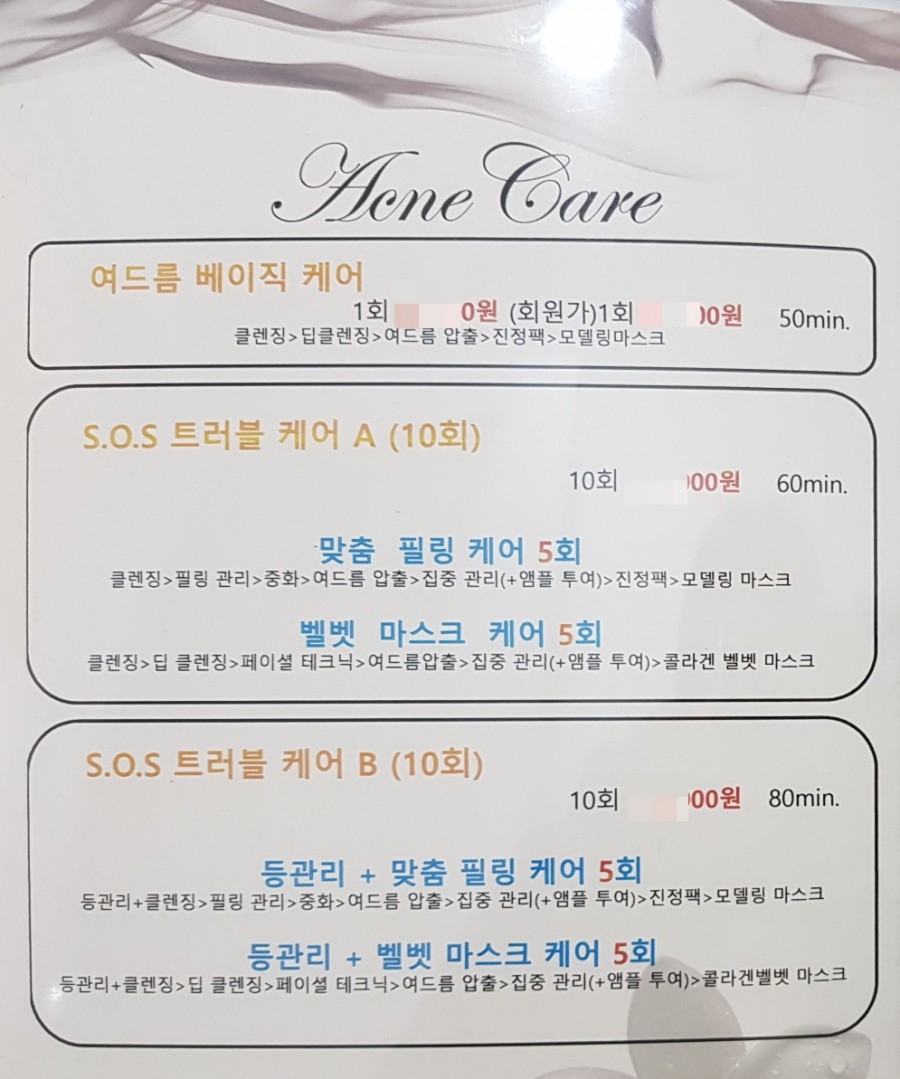 Acne Care
여드름 베이직 케어
1회 0원 (회원가)1회 00원 50min.
클렌징>딥클렌징>여드름 압출>진정팩>모델링마스크
S.O.S 트러블 케어 A (10회)
10회 000원 60min.
맞춤 필링 케어 5회
클렌징>필링 관리>중화>여드름 압출>집중 관리(+앰플 투여)>진정팩>모델링 마스크
벨벳 마스크 케어 5회
클렌징>딥 클렌징>페이셜 테크닉>여드름압출>집중 관리(+앰플 투여)>콜라겐 벨벳 마스크
S.O.S 트러블 케어 B (10회)
10회 000원 80min.
등관리 + 맞춤 필링 케어 5회
등관리+클렌징>필링 관리>중화>여드름 압출>집중 관리(+앰플 투여)>진정팩>모델링 마스크
등관리 + 벨벳 마스크 케어 5회
등관리+클렌징>딥 클렌징>페이셜 테크닉>여드름 압출>집중 관리(+앰플 투여)>콜라겐벨벳 마스크